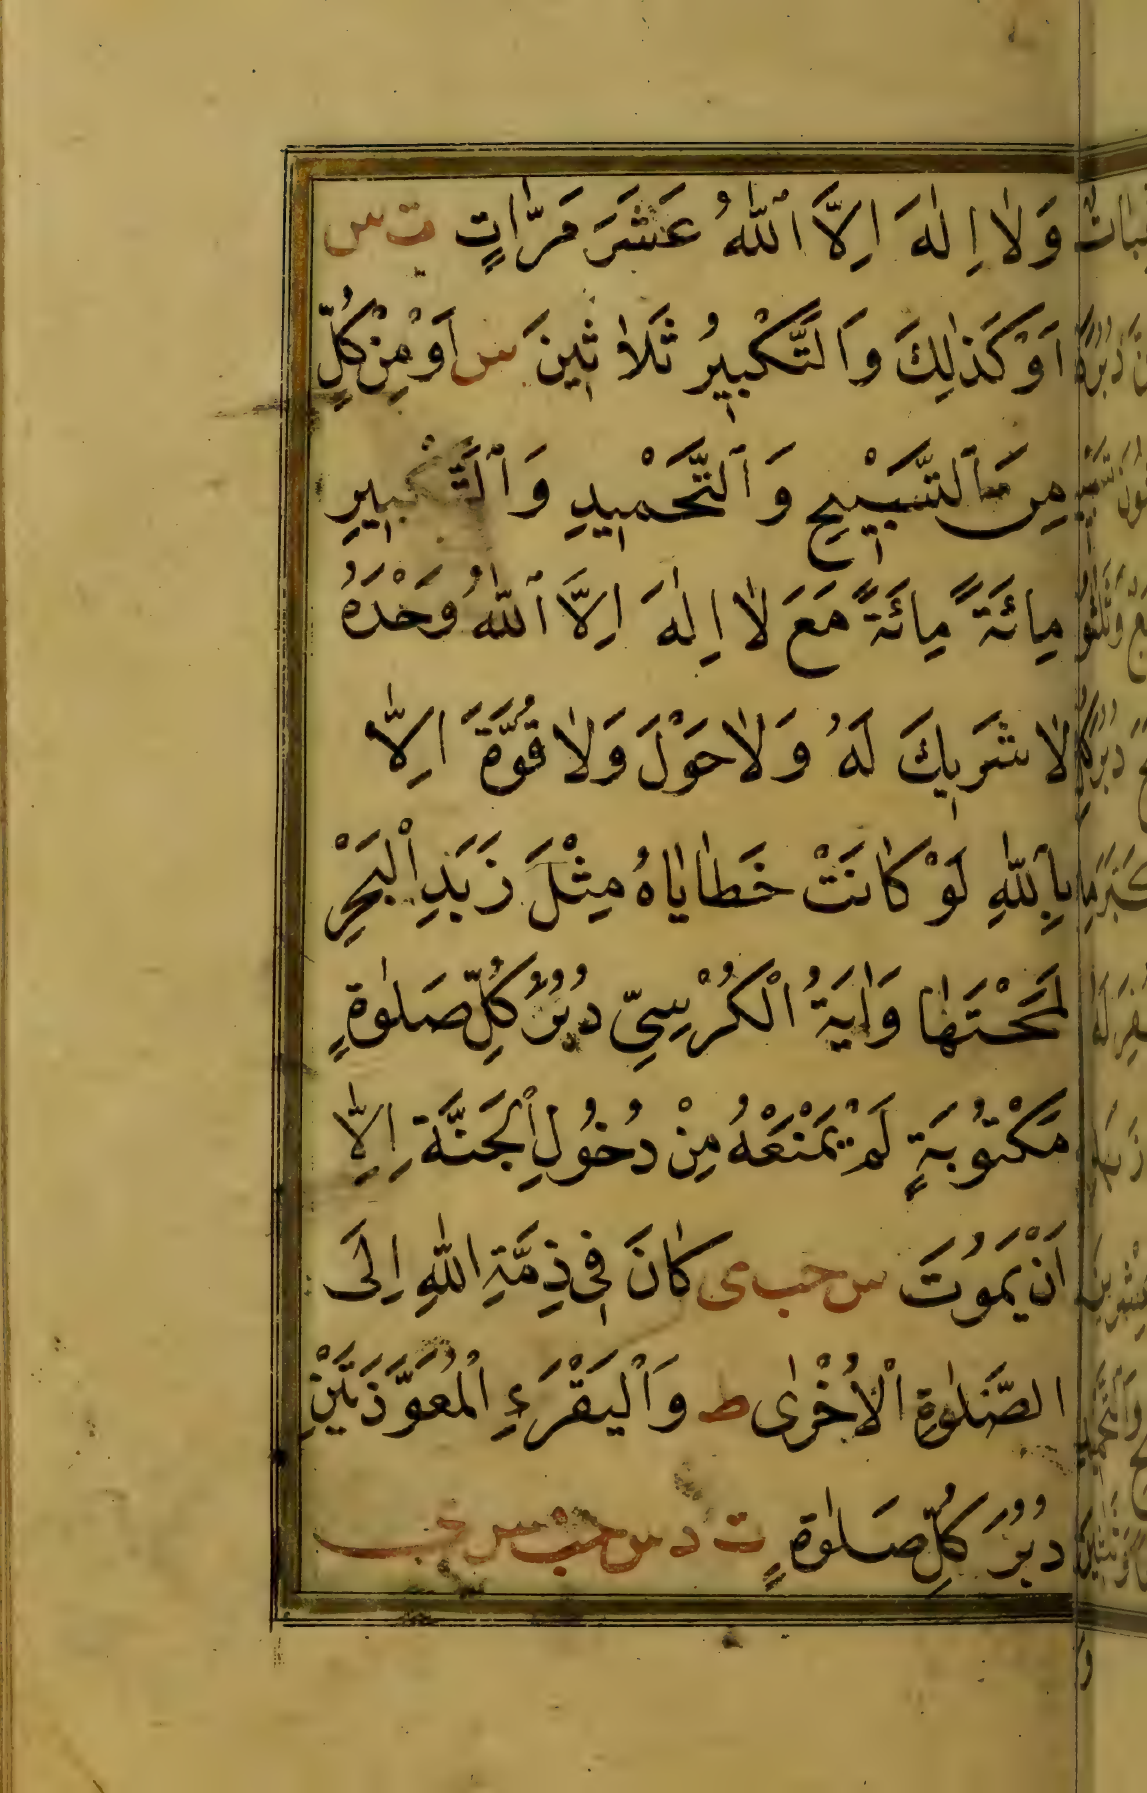 وَلَا اِلٰهَ اِلَّا ٱللّٰهُ عَشَرَ مَرَّاتٍ ت س
اَوْ كَذٰلِكَ وَالتَّكْبِيرُ ثَلَاثِينَ س اَوْ مِنْ كُلٍّ
مِنَ ٱلتَّسْبِيْحِ وَٱلتَّحْمِيدِ وَٱلتَّكْبِيرِ
مِائَةً مِائَةً مَعَ لَا اِلٰهَ اِلَّا ٱللّٰهُ وَحْدَهُ
لَا شَرِيكَ لَهُ وَلَا حَوْلَ وَلَا قُوَّةَ اِلَّا
بِاللّٰهِ لَوْ كَانَتْ خَطَايَاهُ مِثْلَ زَبَدِ الْبَحْرِ
لَمَحَتْهَا وَاٰيَةُ الْكُرْسِيِّ دُبُرَ كُلِّ صَلٰوةٍ
مَكْتُوبَةٍ لَمْ يَمْنَعْهُ مِنْ دُخُولِ الْجَنَّةِ اِلَّا
اَنْ يَمُوتَ س حب ى كَانَ فِي ذِمَّةِ اللّٰهِ اِلَى
الصَّلٰوةِ الْاُخْرٰى ط وَالْيَقْرَءِ الْمُعَوَّذَتَيْنِ
دُبُرَ كُلِّ صَلٰوةٍ ت د س حب س